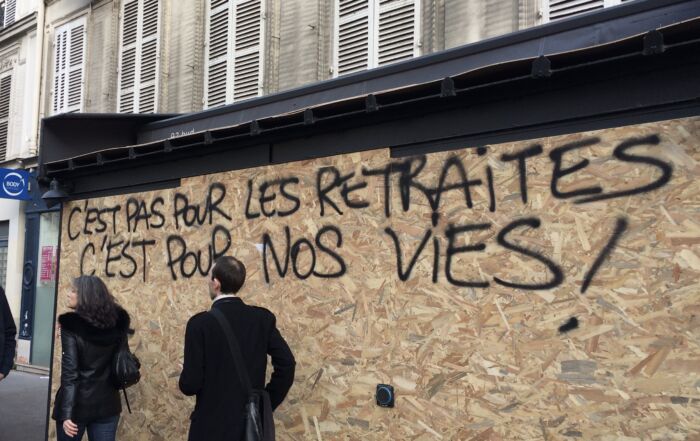 C'EST PAS POUR LES RETRAITES
C'EST POUR NOS VIES !
BODY